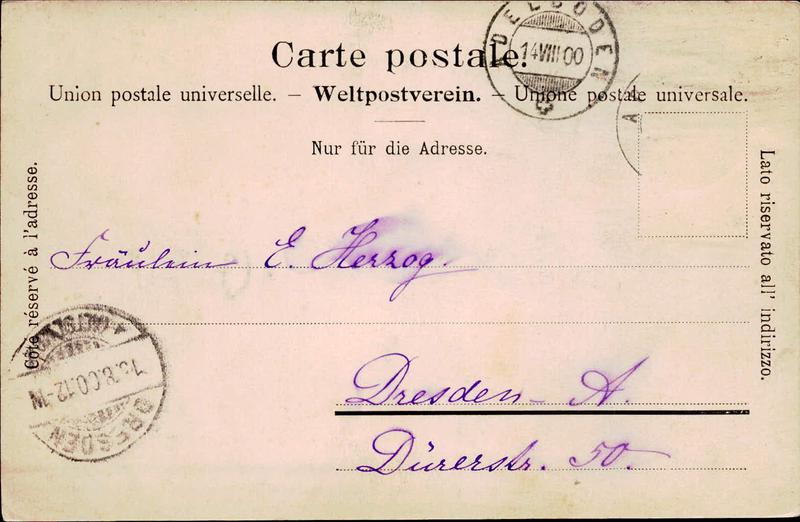 Carte postale.
Union postale universelle. – Weltpostverein. – Unione postale universale.
Nur für die Adresse.
DELBODEN
14 VIII 00
A
Côté réservé à l'adresse.
Lato riservato all' indirizzo.
Fräulein E. Herzog.
Dresden - A.
Dürerstr. 50.
DRESDEN
.8.00.12-1N